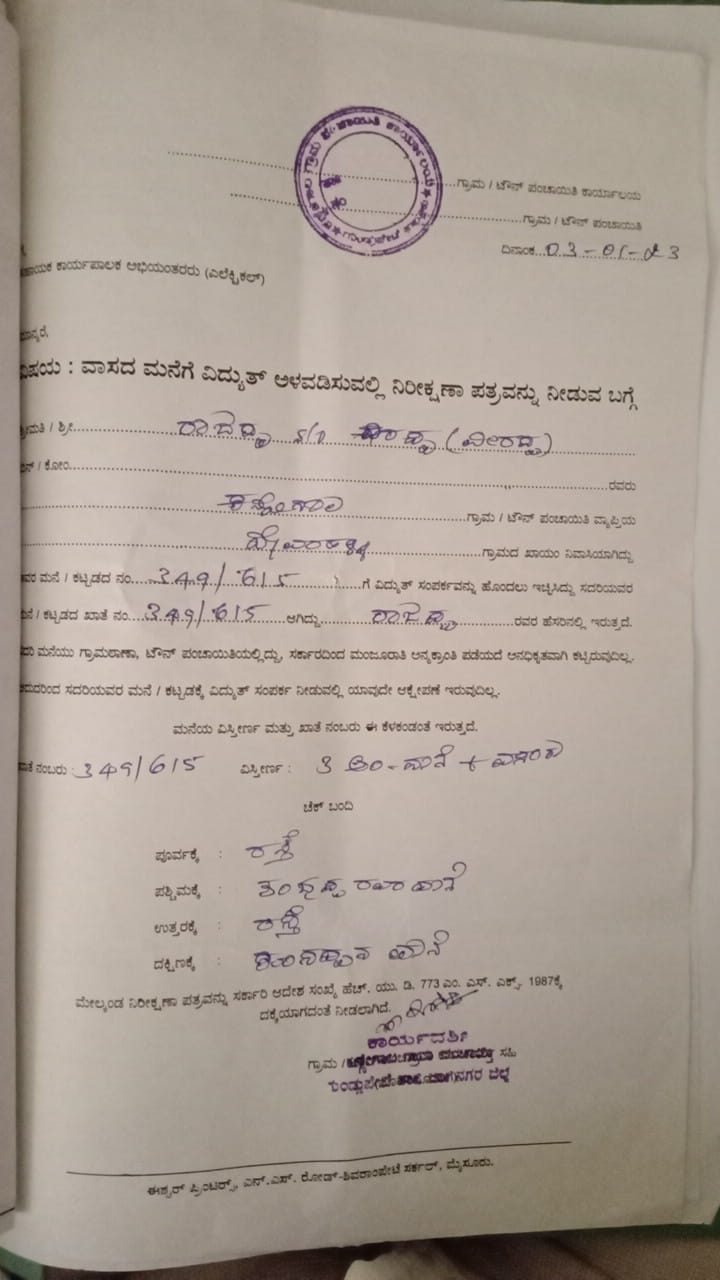 ಗ್ರಾಮ / ಟೌನ್ ಪಂಚಾಯಿತಿ ಕಾರ್ಯಾಲಯ
ಗ್ರಾಮ / ಟೌನ್ ಪಂಚಾಯಿತಿ
ದಿನಾಂಕ 03-01-23
ಕಾರ್ಯಪಾಲಕ ಅಭಿಯಂತರರು (ಎಲೆಕ್ಟ್ರಿಕಲ್)
ವಿಷಯ : ವಾಸದ ಮನೆಗೆ ವಿದ್ಯುತ್ ಅಳವಡಿಸುವಲ್ಲಿ ನಿರೀಕ್ಷಣಾ ಪತ್ರವನ್ನು ನೀಡುವ ಬಗ್ಗೆ
ಶ್ರೀಮತಿ / ಶ್ರೀ ರಾಜಪ್ಪ S/o (ವೀರಪ್ಪ)
/ ಕೋಂ ರವರು
ಗ್ರಾಮ / ಟೌನ್ ಪಂಚಾಯಿತಿ ವ್ಯಾಪ್ತಿಯ
ಗ್ರಾಮದ ಖಾಯಂ ನಿವಾಸಿಯಾಗಿದ್ದು
ಮನೆ / ಕಟ್ಟಡದ ನಂ. 349/615 ಗೆ ವಿದ್ಯುತ್ ಸಂಪರ್ಕವನ್ನು ಹೊಂದಲು ಇಚ್ಛಿಸಿದ್ದು ಸದರಿಯವರ
/ ಕಟ್ಟಡದ ಖಾತೆ ನಂ. 349/615 ಆಗಿದ್ದು ರಾಜಪ್ಪ ರವರ ಹೆಸರಿನಲ್ಲಿ ಇರುತ್ತದೆ.
ಮನೆಯು ಗ್ರಾಮಠಾಣಾ, ಟೌನ್ ಪಂಚಾಯಿತಿಯಲ್ಲಿದ್ದು, ಸರ್ಕಾರದಿಂದ ಮಂಜೂರಾತಿ ಅನ್ಯಕ್ರಾಂತಿ ಪಡೆಯದೆ ಅನಧಿಕೃತವಾಗಿ ಕಟ್ಟಿರುವುದಿಲ್ಲ.
ಸದರಿಯವರ ಮನೆ / ಕಟ್ಟಡಕ್ಕೆ ವಿದ್ಯುತ್ ಸಂಪರ್ಕ ನೀಡುವಲ್ಲಿ ಯಾವುದೇ ಆಕ್ಷೇಪಣೆ ಇರುವುದಿಲ್ಲ.
ಮನೆಯ ವಿಸ್ತೀರ್ಣ ಮತ್ತು ಖಾತೆ ನಂಬರು ಈ ಕೆಳಕಂಡಂತೆ ಇರುತ್ತದೆ.
ನಂಬರು : 349/615 ವಿಸ್ತೀರ್ಣ : 3 ಅಂ-ಮನೆ +
ಚೆಕ್ ಬಂದಿ
ಪೂರ್ವಕ್ಕೆ : ರಸ್ತೆ
ಪಶ್ಚಿಮಕ್ಕೆ : ರವರ ಮನೆ
ಉತ್ತರಕ್ಕೆ : ರಸ್ತೆ
ದಕ್ಷಿಣಕ್ಕೆ : ಮನೆ
ಮೇಲ್ಕಂಡ ನಿರೀಕ್ಷಣಾ ಪತ್ರವನ್ನು ಸರ್ಕಾರಿ ಆದೇಶ ಸಂಖ್ಯೆ ಹೆಚ್. ಯು. ಡಿ. 773 ಎಂ. ಎಸ್. ಎಕ್ಸ್. 1987ಕ್ಕೆ
ದಕ್ಕೆಯಾಗದಂತೆ ನೀಡಲಾಗಿದೆ.
ಕಾರ್ಯದರ್ಶಿ
ಗ್ರಾಮ / ಸಹಿ
ಈಶ್ವರ್ ಪ್ರಿಂಟರ್ಸ್, ಎನ್.ಎಸ್. ರೋಡ್-ಶಿವರಾಂಪೇಟೆ ಸರ್ಕಲ್, ಮೈಸೂರು.